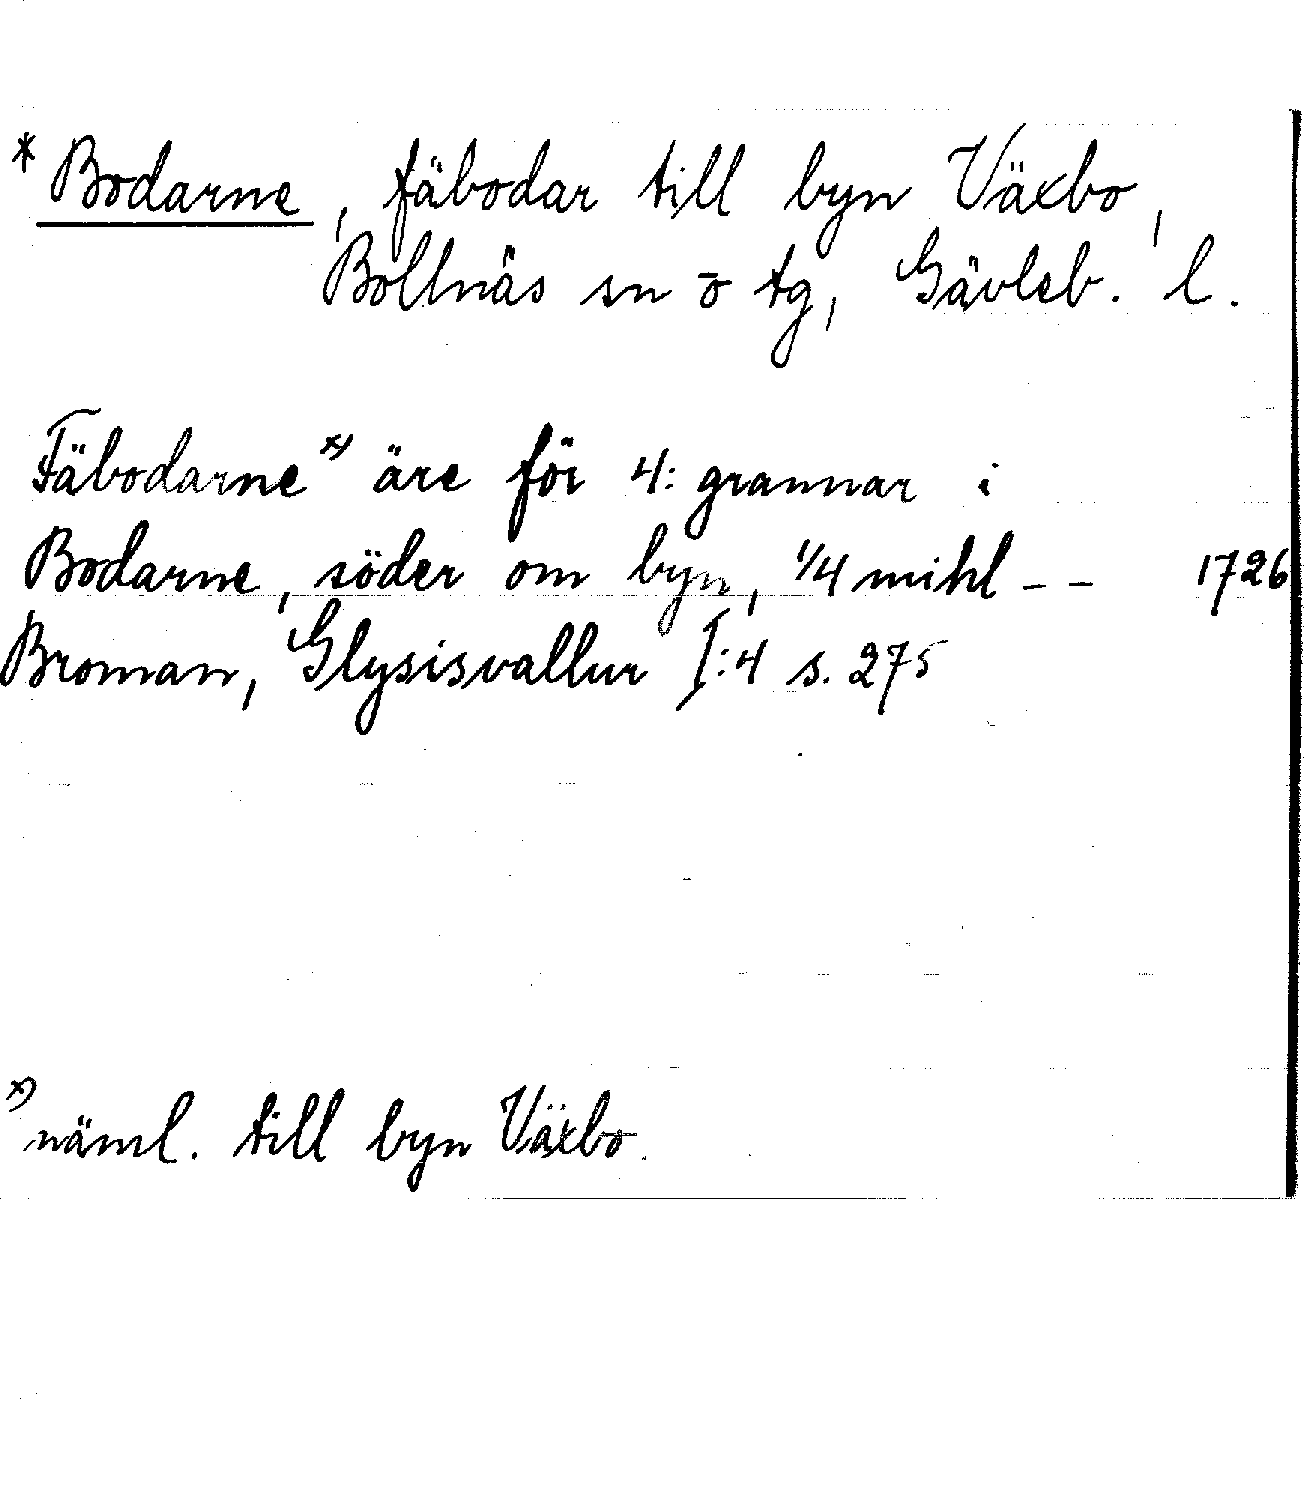 * Bodarne, fäbodar till byn Växbo,
Bollnäs sn o tg, Gävleb. l.
Fäbodarne x) äre för 4: grannar i
Bodarne, söder om byn, 1/4 mihl - - 1726
Broman, Glysisvallur I:4 s. 275
x) näml. till byn Växbo.